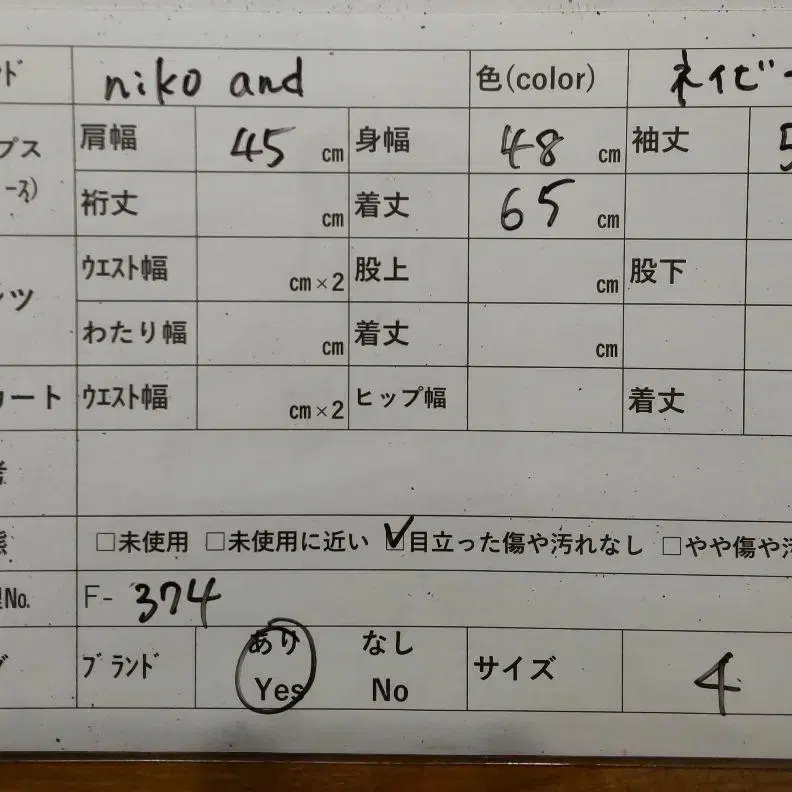 ド niko and 色(color) ネイビー
プス 肩幅 45 cm 身幅 48 cm 袖丈 5
ース) 裄丈 cm 着丈 65 cm
ツ ウエスト幅 cm×2 股上 cm 股下
わたり幅 cm 着丈 cm
カート ウエスト幅 cm×2 ヒップ幅 着丈
考
態 □未使用 □未使用に近い ☑目立った傷や汚れなし □やや傷や汚
No. F- 374
グ ブランド あり Yes なし No サイズ 4